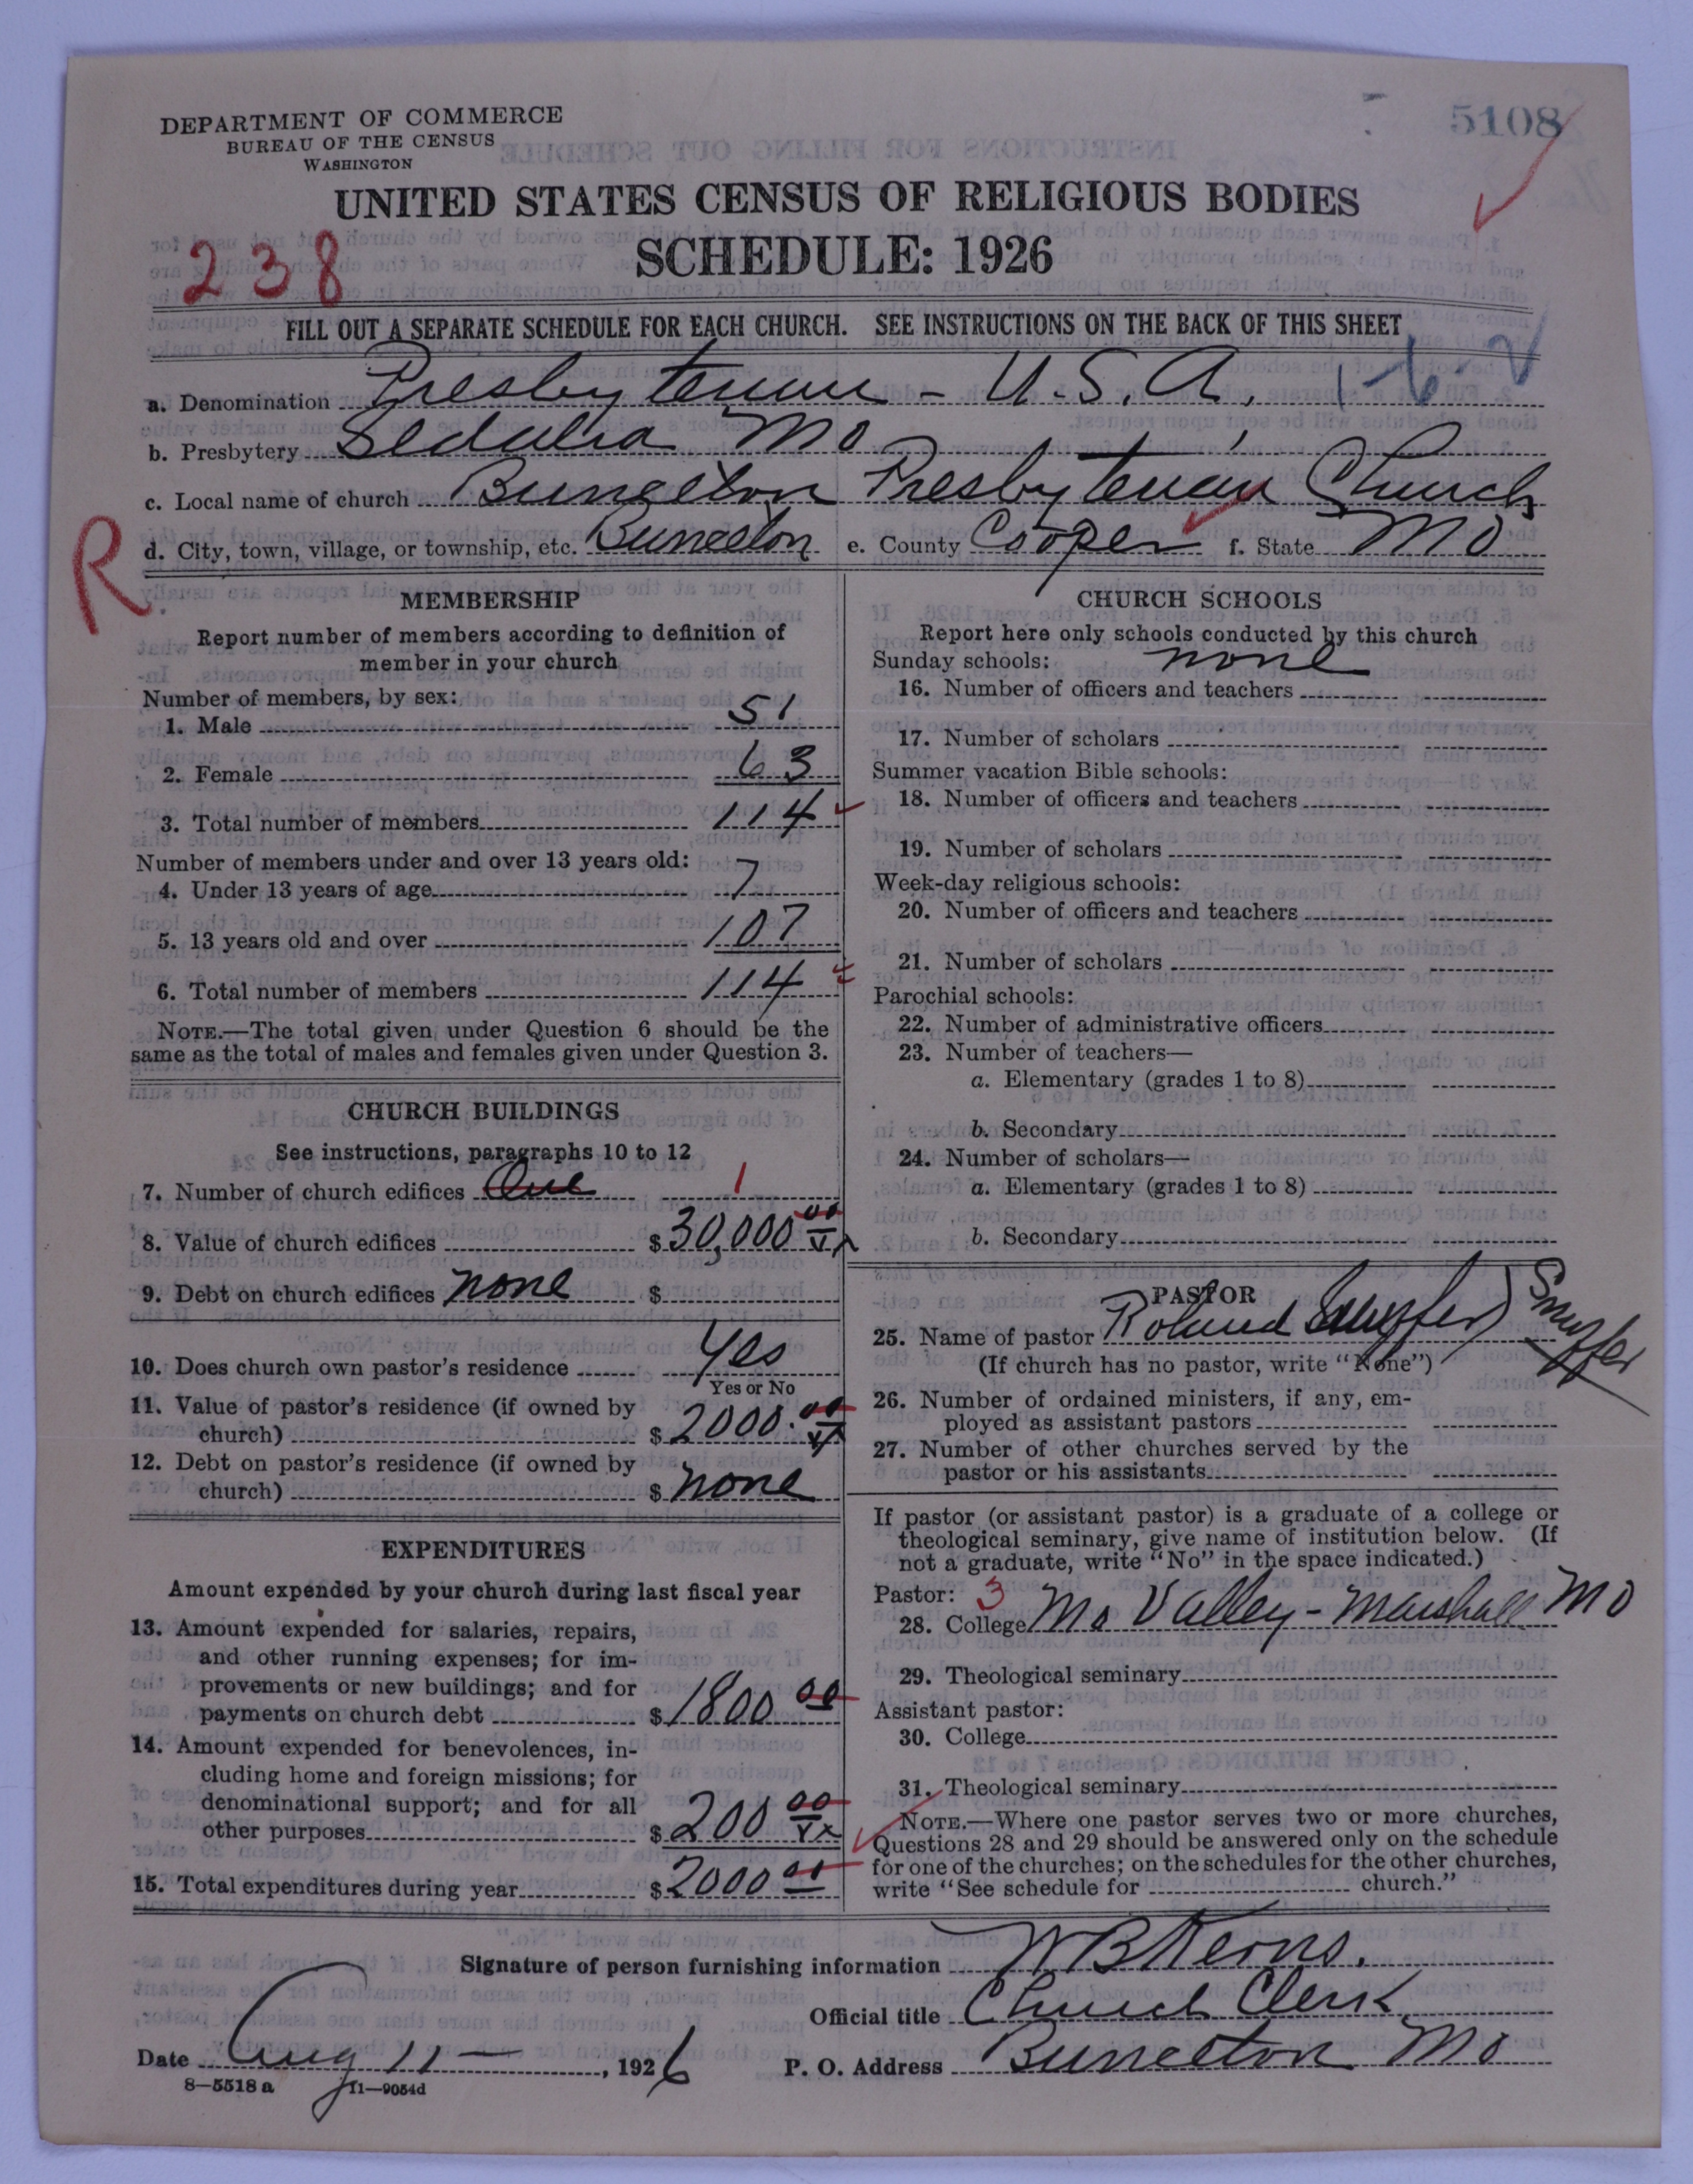 5108
DEPARTMENT OF COMMERCE
BUREAU OF THE CENSUS
WASHINGTON
UNITED STATES CENSUS OF RELIGIOUS BODIES
238
SCHEDULE: 1926
FILL OUT A SEPARATE SCHEDULE FOR EACH CHURCH. SEE INSTRUCTIONS ON THE BACK OF THIS SHEET
a. Denomination Presbyterian - U.S.A. 1-6-2
b. Presbytery Sedalia Mo
c. Local name of church Bunceton Presbyterian Church
R
d. City, town, village, or township, etc. Bunceton e. County Cooper f. State Mo
MEMBERSHIP
Report number of members according to definition of
member in your church
Number of members, by sex:
1. Male 51
2. Female 63
3. Total number of members 114
Number of members under and over 13 years old:
4. Under 13 years of age 7
5. 13 years old and over 107
6. Total number of members 114
NOTE.—The total given under Question 6 should be the
same as the total of males and females given under Question 3.
CHURCH BUILDINGS
See instructions, paragraphs 10 to 12
7. Number of church edifices One 1
8. Value of church edifices $ 30,000 00
9. Debt on church edifices none $
10. Does church own pastor's residence Yes
Yes or No
11. Value of pastor's residence (if owned by
church) $ 2000.00
12. Debt on pastor's residence (if owned by
church) $ none
EXPENDITURES
Amount expended by your church during last fiscal year
13. Amount expended for salaries, repairs,
and other running expenses; for im-
provements or new buildings; and for
payments on church debt $ 1800 00
14. Amount expended for benevolences, in-
cluding home and foreign missions; for
denominational support; and for all
other purposes $ 200 00
15. Total expenditures during year $ 2000 00
CHURCH SCHOOLS
Report here only schools conducted by this church
Sunday schools: none
16. Number of officers and teachers
17. Number of scholars
Summer vacation Bible schools:
18. Number of officers and teachers
19. Number of scholars
Week-day religious schools:
20. Number of officers and teachers
21. Number of scholars
Parochial schools:
22. Number of administrative officers
23. Number of teachers—
a. Elementary (grades 1 to 8)
b. Secondary
24. Number of scholars—
a. Elementary (grades 1 to 8)
b. Secondary
PASTOR
25. Name of pastor Roland
(If church has no pastor, write "None")
26. Number of ordained ministers, if any, em-
ployed as assistant pastors
27. Number of other churches served by the
pastor or his assistants
If pastor (or assistant pastor) is a graduate of a college or
theological seminary, give name of institution below. (If
not a graduate, write "No" in the space indicated.)
Pastor: 3
28. College Mo Valley - Marshall Mo
29. Theological seminary
Assistant pastor:
30. College
31. Theological seminary
NOTE.—Where one pastor serves two or more churches,
Questions 28 and 29 should be answered only on the schedule
for one of the churches; on the schedules for the other churches,
write "See schedule for church."
Signature of person furnishing information W B Kerns.
Official title Church Clerk
Date Aug 11 - , 1926 P. O. Address Bunceton Mo
8—5518 a 11—9054d